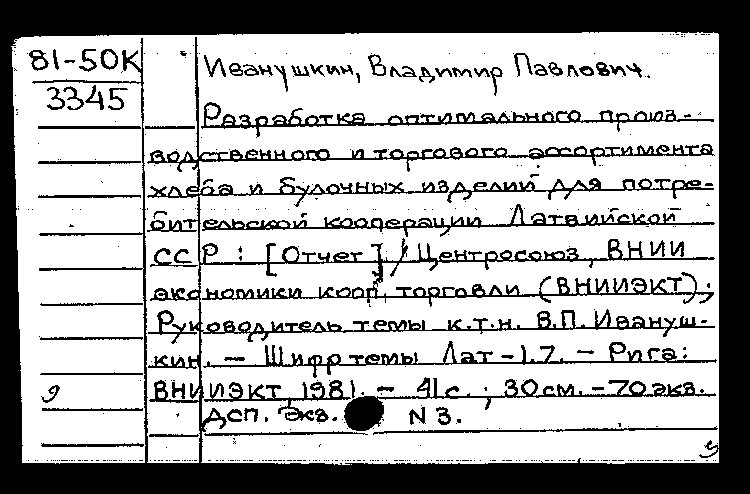 81-50К
3345
Иванушкин, Владимир Павлович.
Разработка оптимального произ-
водственного и торгового ассортимента
хлеба и булочных изделий для потре-
бительской кооперации Латвийской
ССР : [Отчет] / Центросоюз, ВНИИ
экономики кооп. торговли (ВНИИЭКТ) ;
Руководитель темы к.т.н. В.П. Ивануш-
кин. — Шифр темы Лат-1.7. — Рига:
ВНИИЭКТ, 1981. — 41 с. ; 30 см. — 70 экз.
ДСП. Экз. N 3.